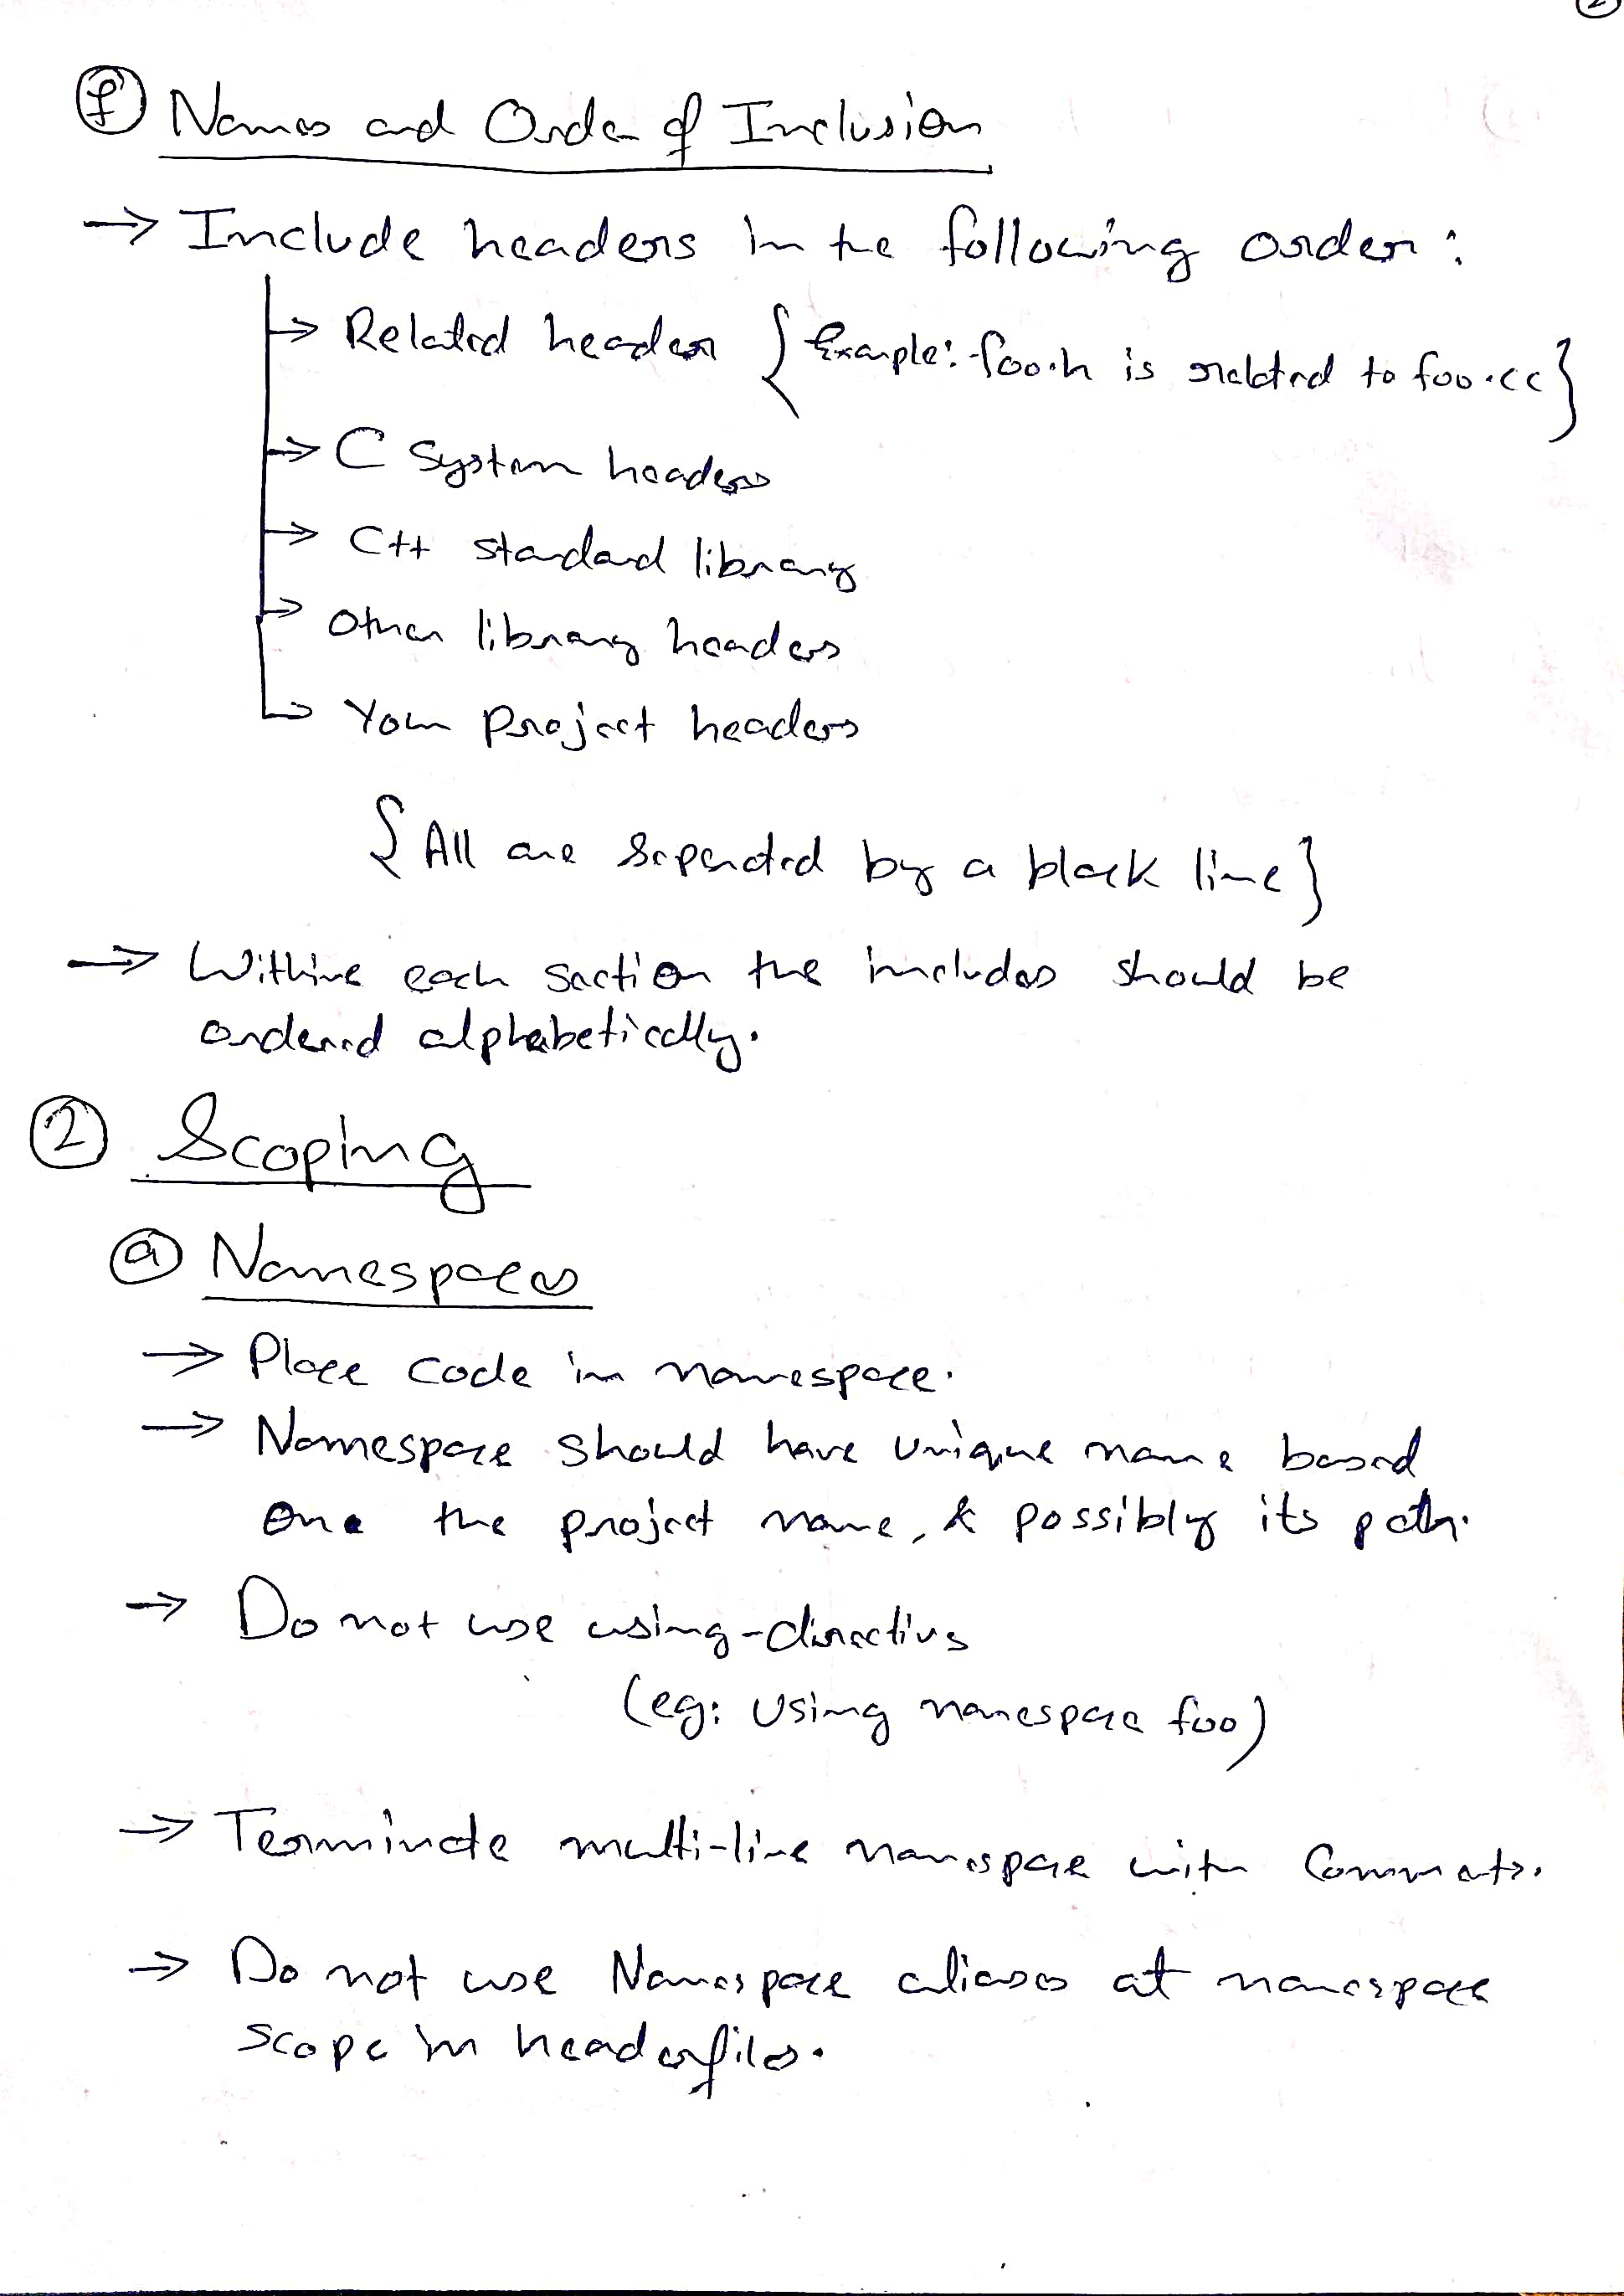 2
f Names and Order of Inclusion
→ Include headers in the following order:
→ Related header { Example: foo.h is related to foo.cc }
→ C System headers
→ C++ standard library
→ Other library headers
→ Your Project headers
{ All are separated by a black line }
→ Within each section the includes should be
ordered alphabetically.
2 Scoping
a Namespaces
→ Place code in namespace.
→ Namespace should have unique name based
on the project name, & possibly its path.
→ Do not use using-directives
(eg: Using namespace foo)
→ Terminate multi-line namespace with Comments.
→ Do not use Namespace aliases at namespace
scope in header files.